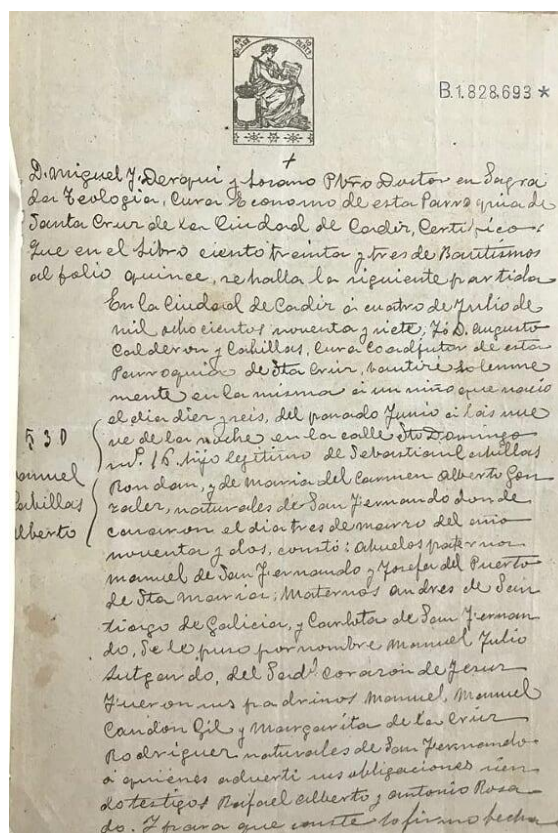 B.1.828.693 *
D. Miguel J. Derqui y Lozano Pbro Doctor en Sagra
da Teologia, Cura Economo de esta Parroquia de
Santa Cruz de la Ciudad de Cadiz, Certifico:
Que en el Libro ciento treinta y tres de Bautismos
al folio quince, se halla la siguiente partida
En la Ciudad de Cadiz á cuatro de Julio de
mil ochocientos noventa y siete, Yó D. Augusto
Calderon y Cabillas, Cura Coadjutor de esta
Parroquia de Sta Cruz, bautizé solemne
mente en la misma á un niño que nació
el dia diez y seis, del pasado Junio á las nue
ve de la noche en la calle Sto Domingo
nº. 16. hijo legitimo de Sebastian Cabillas
Rondan, y de Maria del Carmen Alberto Gon
zalez, naturales de San Fernando donde
casaron el dia tres de marzo del año
noventa y dos, constó: abuelos paternos
Manuel de San Fernando y Josefa del Puerto
de Sta Maria; Maternos Andres de San
tiago de Galicia, y Carlota de San Fernan
do, Se le puso por nombre Manuel Julio
del Sadº Corazon de Jesus
Fueron sus padrinos Manuel, Manuel
Candon Gil y Margarita de la Cruz
Rodriguez naturales de San Fernando
á quienes adverti sus obligaciones sien
do testigos Rafael Alberto y Antonio Rosa
do. Y para que conste lo firmo fecha
530
anuel
Cabillas
lberto